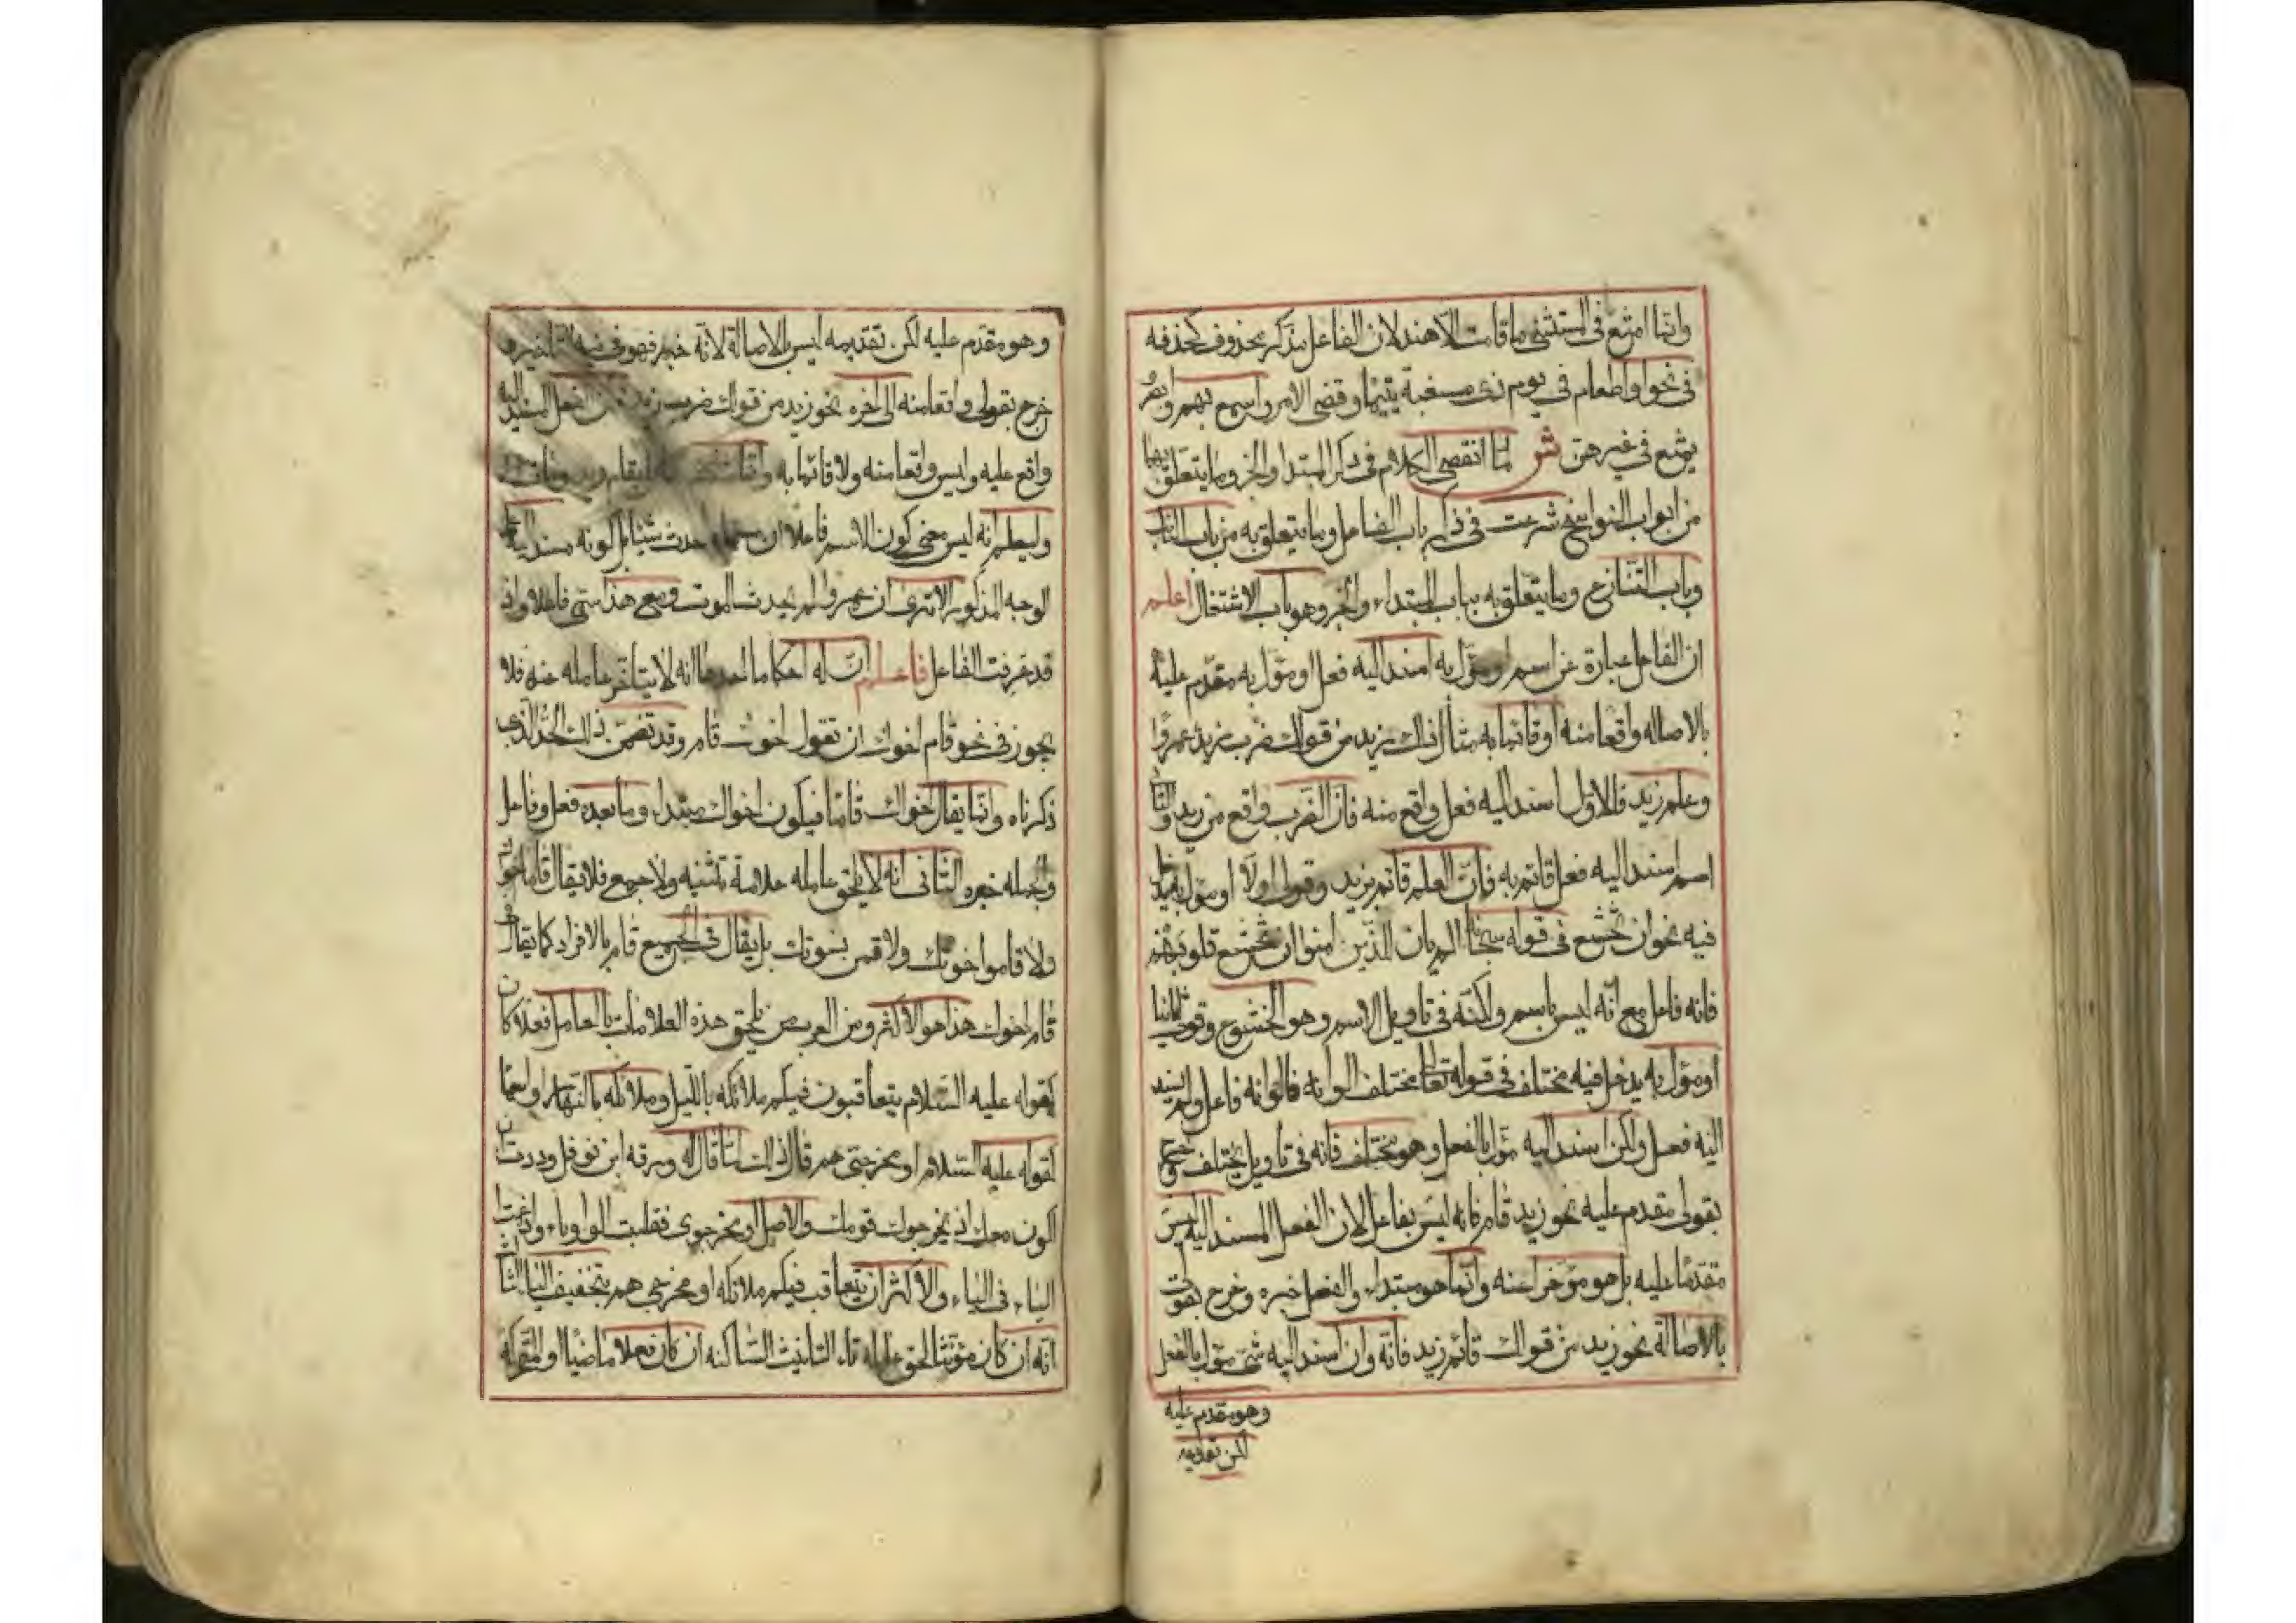 وانما امتنع في المستثنى ما قامت الا هند لان الفاعل مذكر محذوف كحذفه
في نحو او اطعام في يوم ذي مسغبة يتيما وقضي الامر واسمع بهم وابصر
يمتنع في غيرهن ش لما انقضى الكلام في ذكر المبتدا والخبر وما يتعلق بهما
من ابواب النواسخ شرعت في ذكر باب الفاعل وما يتعلق به من باب النائب
وباب التنازع وما يتعلق به بباب المبتداء والخبر وهو باب الاشتغال اعلم
ان الفاعل عبارة عن اسم او مؤل به اسند اليه فعل او مؤل به مقدم عليه
بالاصاله واقعا منه او قائما به مثال ذلك زيد من قولك ضرب زيد عمروا
وعلم زيد فالاول اسند اليه فعل واقع منه فان الضرب واقع من زيد والثانى
اسم اسند اليه فعل قائم به فان العلم قائم بزيد وقولى اولا او مؤل به يدخل
فيه نحو ان تخشع في قوله سبحانه الم يان للذين امنوا ان تخشع قلوبهم
فانه فاعل مع انه ليس باسم ولكنه في تاويل الاسم وهو الخشوع وقولى ثانيا
او مؤل به يدخل فيه مختلف في قوله تعالى مختلف الوانه فالوانه فاعل ولم يسند
اليه فعل ولكن اسند اليه مؤل بالفعل وهو مختلف فانه في تاويل يختلف وخرج
بقولى مقدم عليه نحو زيد قام فانه ليس بفاعل لان الفعل المسند اليه ليس
مقدما عليه بل هو مؤخرا عنه وانما هو مبتداء والفعل خبره وخرج بقولى
بالاصالة نحو زيد من قولك قائم زيد فانه وان اسند اليه شئ مؤل بالفعل
وهو مقدم عليه
لكن تقديمه
وهو مقدم عليه لكن تقديمه ليس بالاصالة لانه خبر فهو في نية التاخير و
خرج بقولى واقعا منه الى اخره نحو زيد من قولك ضرب زيد فان الفعل المسند اليه
واقع عليه وليس واقعا منه ولا قائما به وانما مثلت الفاعل بقام زيد ومات
وليعلم انه ليس معنى كون الاسم فاعلا ان مسماه احدث شيئا بل كونه مسندا اليه على
الوجه المذكور الا ترى ان عمروا لم يحدث الموت ومع هذا سمى فاعلا واذ
قد عرفت الفاعل فاعلم ان له احكاما احدها انه لا يتاخر عامله عنه فلا
يجوز في نحو قام اخوك ان تقول اخوك قام وقد تضمن ذلك الحد الذى
ذكرناه وانما يقال اخواك قاما فيكون اخواك مبتداء وما بعده فعل وفاعل
والجمله خبره الثانى انه لا يلحق عامله علامة تثنيه ولا جمع فلا يقال قاما اخواك
ولا قاموا اخوتك ولا قمن نسوتك بل يقال في الجميع قام بالافراد كما يقال
قام اخوك هذا هو الاكثر ومن العرب من يلحق هذه العلامات بالعامل فعلا كان
كقوله عليه السلام يتعاقبون فيكم ملائكه بالليل وملائكه بالنهار او اسما
كقوله عليه السلام او مخرجى هم قال ذلك لما قال له ورقه ابن نوفل وددت ان
اكون معك اذ يخرجوك قومك والاصل او مخرجوى فقلبت الواو ياء وادغمت
الياء في الياء والاكثر ان يتعاقب فيكم ملائكه او مخرجى هم بتخفيف الياء الثالث
انه ان كان مؤنثا لحق عامله تاء التانيث الساكنه ان كان فعلا ماضيا او المتحركه